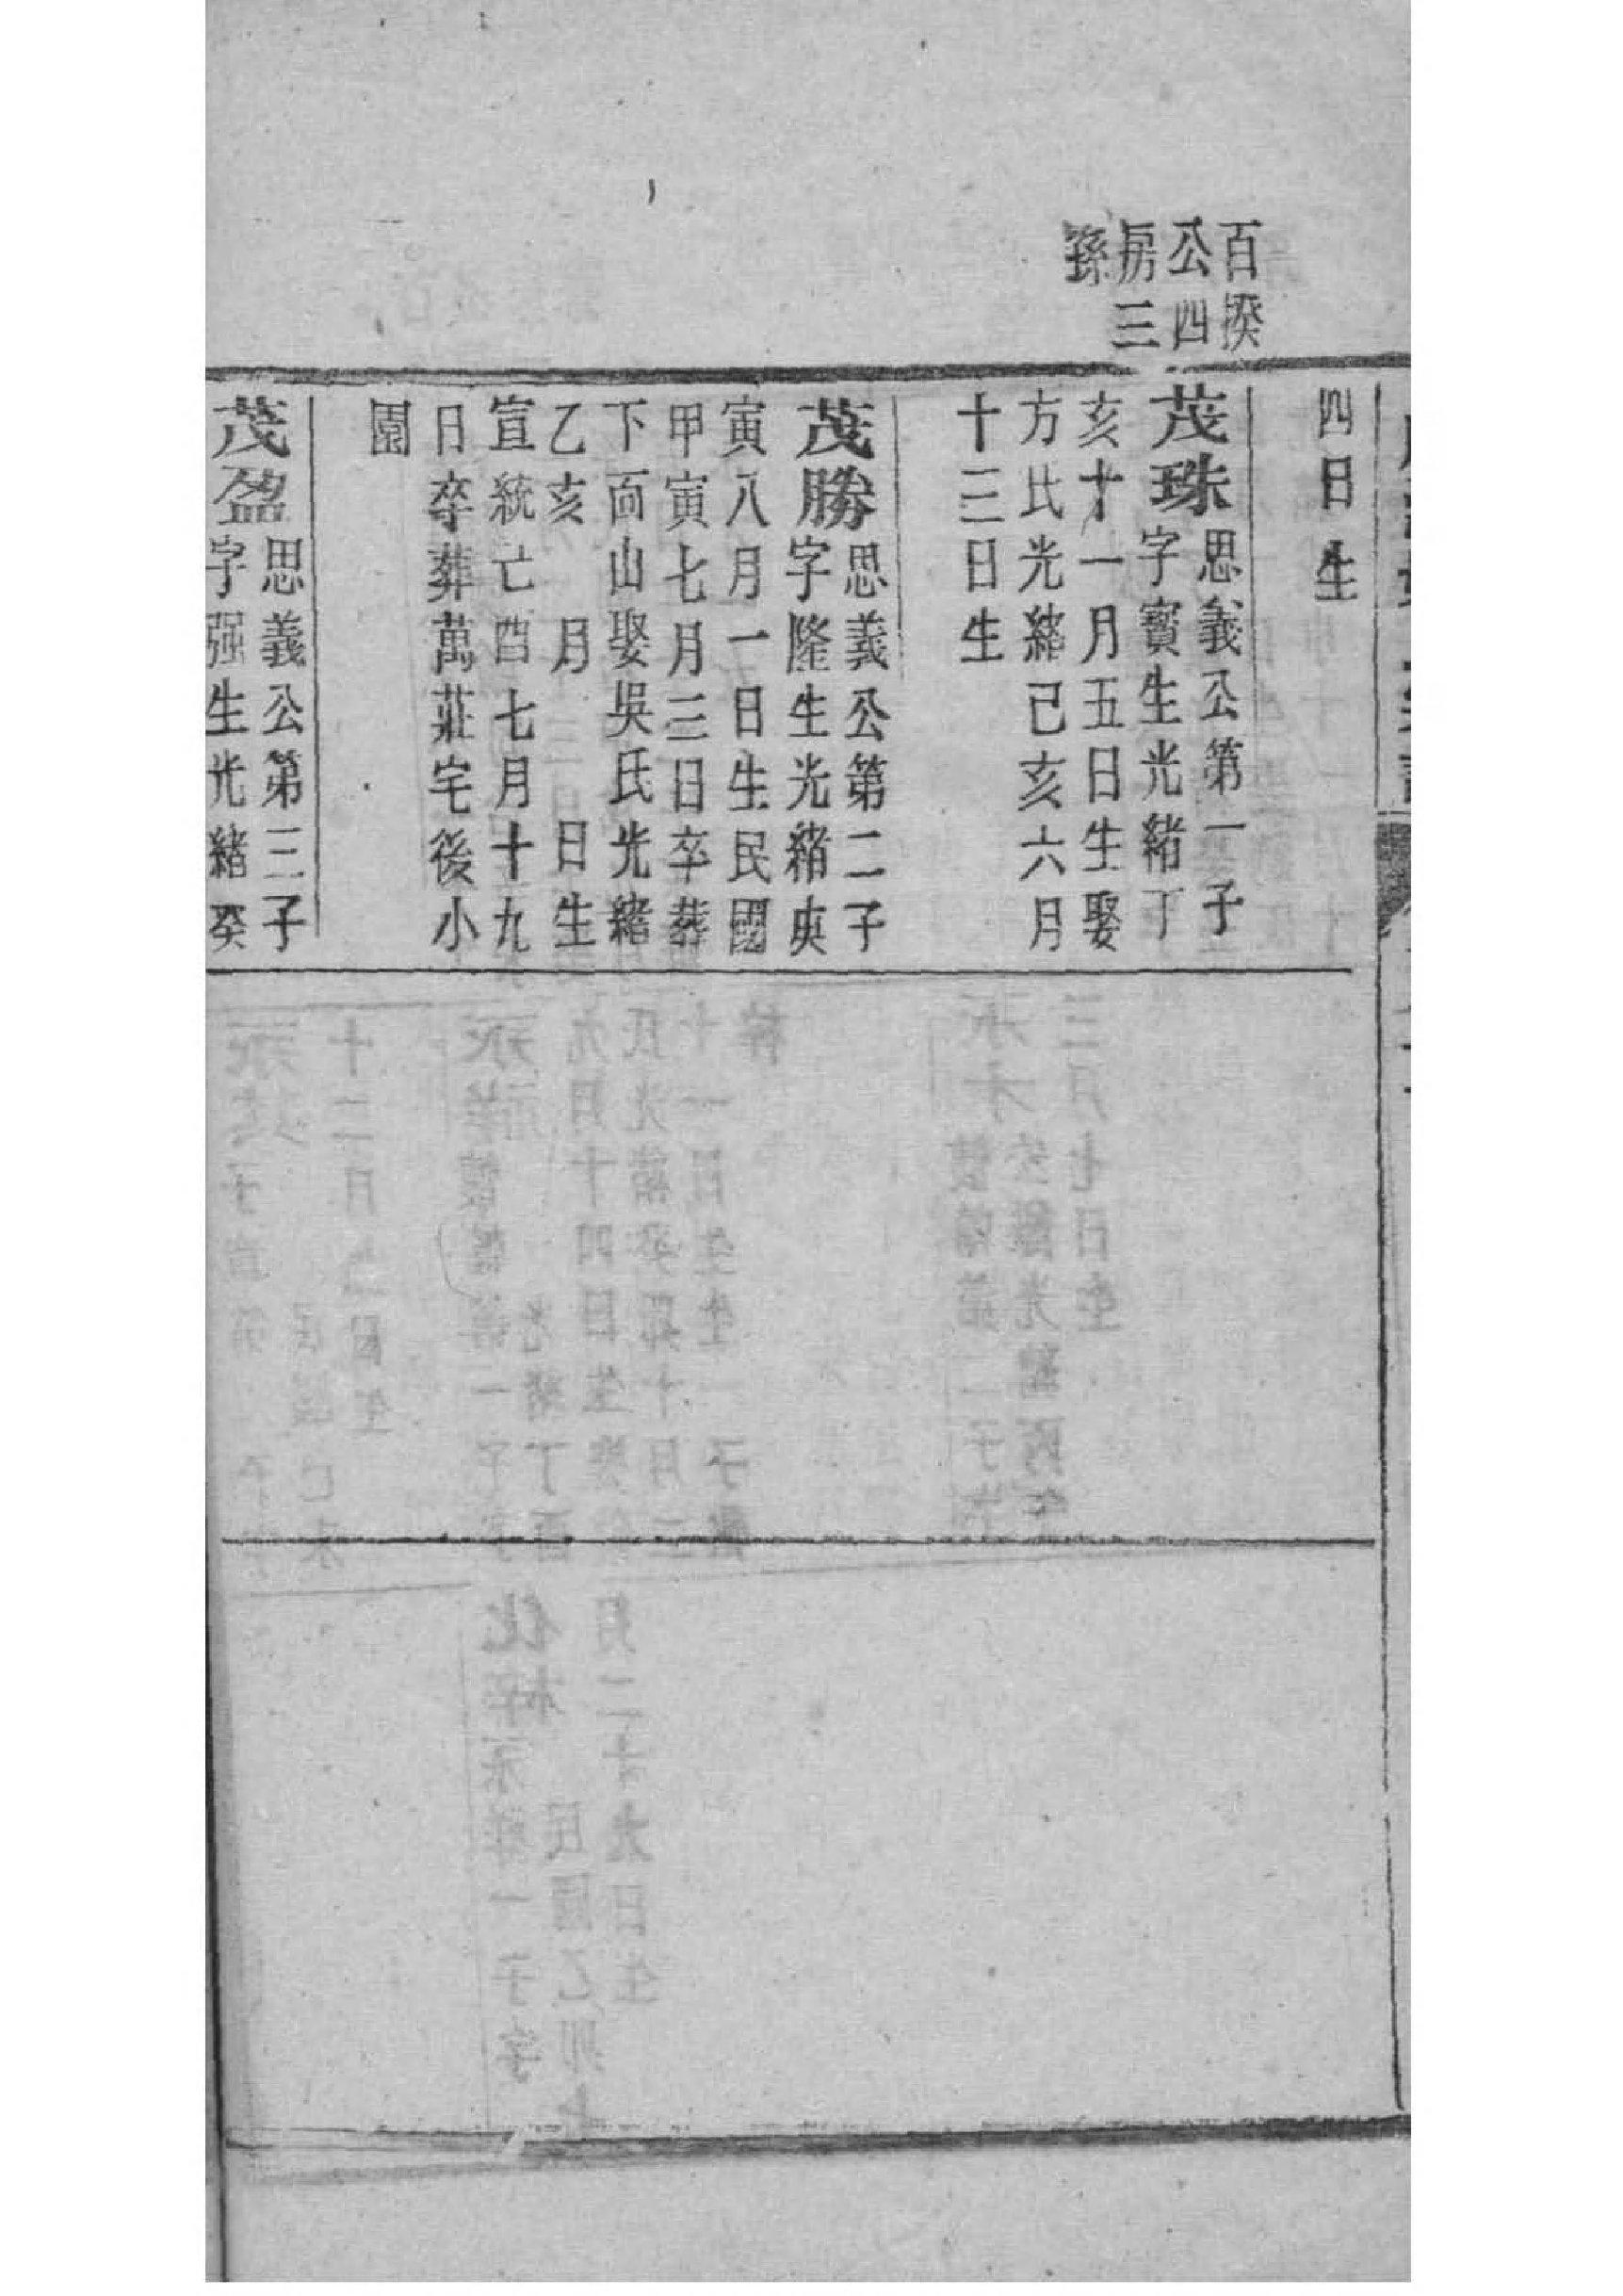 百揆
公四
房三
孫
四日生
茂珠
思義公第一子
字寶生光緒丁
亥十一月五日生娶
方氏光緒己亥六月
十三日生
茂勝
思義公第二子
字隆生光緒庚
寅八月一日生民國
甲寅七月三日卒葬
下面山娶吳氏光緒
乙亥 月 日生
宣統亡酉七月十九
日卒葬萬莊宅後小
園
茂盈
思義公第三子
字强生光緒癸